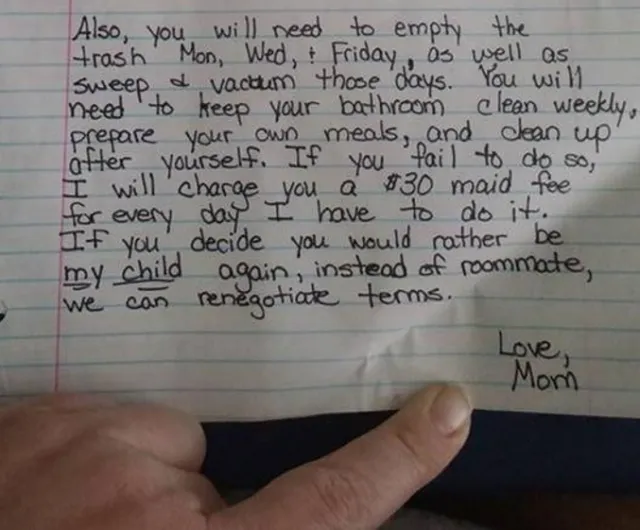 Also, you will need to empty the
trash Mon, Wed, & Friday, as well as
sweep & vacuum those days. You will
need to keep your bathroom clean weekly,
prepare your own meals, and clean up
after yourself. If you fail to do so,
I will charge you a $30 maid fee
for every day I have to do it.
If you decide you would rather be
my child again, instead of roommate,
we can renegotiate terms.
Love,
Mom